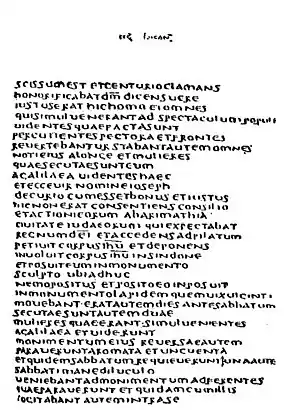 sec lucan
SCISSUM EST ET CENTURIO CLAMANS
HONORIFICABAT DM̅ DICENS UERE
IUSTUS ERAT HIC HOMO ET OMNES
QUI SIMUL UENERANT AD SPECTACULUM POPULI
UIDENTES QUAE FACTA SUNT
PERCUTIENTES PECTORA ET FRONTES
REUERTEBANTUR STABANT AUTEM OMNES
NOTI EIUS A LONGE ET MULIERES
QUAE SECUTAE SUNT EUM
A GALILAEA UIDENTES HAEC
ET ECCE UIR NOMINE IOSEPH
DECURIO CUM ESSET BONUS ET IUSTUS
HIC NON ERAT CONSENTIENS CONSILIO
ET ACTIONI EORUM AB ARIMATHIA
CIUITATE IUDAEORUM QUI EXPECTABAT
REGNUM DE̅I̅ ET ACCEDENS AD PILATUM
PETIUIT CORPUS I̅H̅U̅ ET DEPONENS
INUOLUIT CORPUS I̅H̅U̅ IN SINDONE
ET POSUIT EUM IN MONUMENTO
SCULPTO UBI ADHUC
NEMO POSITUS ET POSITO EO INPOSUIT
IN MONUMENTO LAPIDEM QUEM UIX UIGINTI
MOUEBANT ERAT AUTEM DIES ANTE SABBATUM
SECUTAE SUNT AUTEM DUAE
MULIERES QUAE ERANT SIMUL UENIENTES
A GALILAEA ET UIDERUNT
MONIMENTUM EIUS REUERSAE AUTEM
PARAUERUNT AROMATA ET UNGUENTA
ET QUIDEM SABBATUM REQUIEUERUNT UNA AUTE
SABBATI MANE DILUCULO
UENIEBANT AD MONIMENTUM ADFERENTES
QUAE PARAUERUNT ET QUIDAM CUM ILLIS
COGITABANT AUTEM INTRA SE